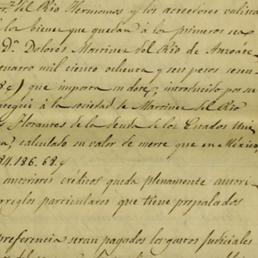 or.s del Rio Hermanos y los acredores valista
los bienes que quedan á los primeros sas
D.a Dolores Martinez del Rio de Anzoáte
cuatro mil ciento ochenta y seis pesos sesen
68 c) que importa su dote, introducido por su
regui à la sociedad de Martinez del Rio
Floraures de la deuda de los Estados Uni
calculado su valor de merre que en México,
84.186.68 c
anteriores créditos queda plenamente autori
arreglos particulares que tiene propalados
preferencia seran pagados los gastos judiciales